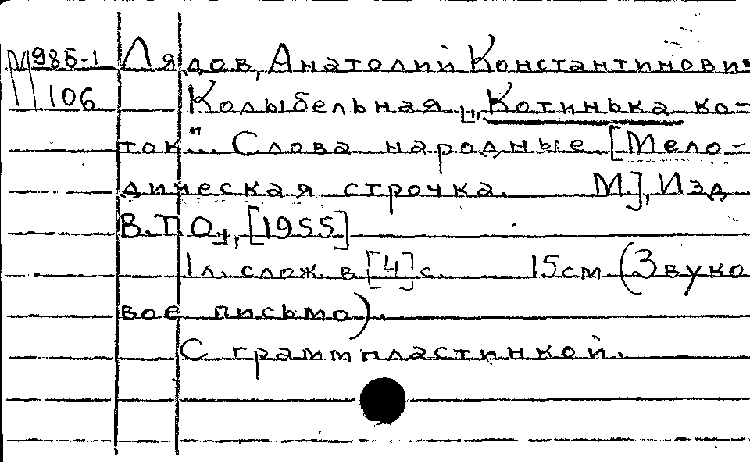 М985-1 Лядов, Анатолий Константинович
106 Колыбельная „Котинька ко-
ток“. Слова народные [Мело-
дическая строчка. М], Изд
В.Т.О., [1955]
1 л. слож. в [4] с. 15 см (Звуко
вое письмо).
С граммпластинкой.